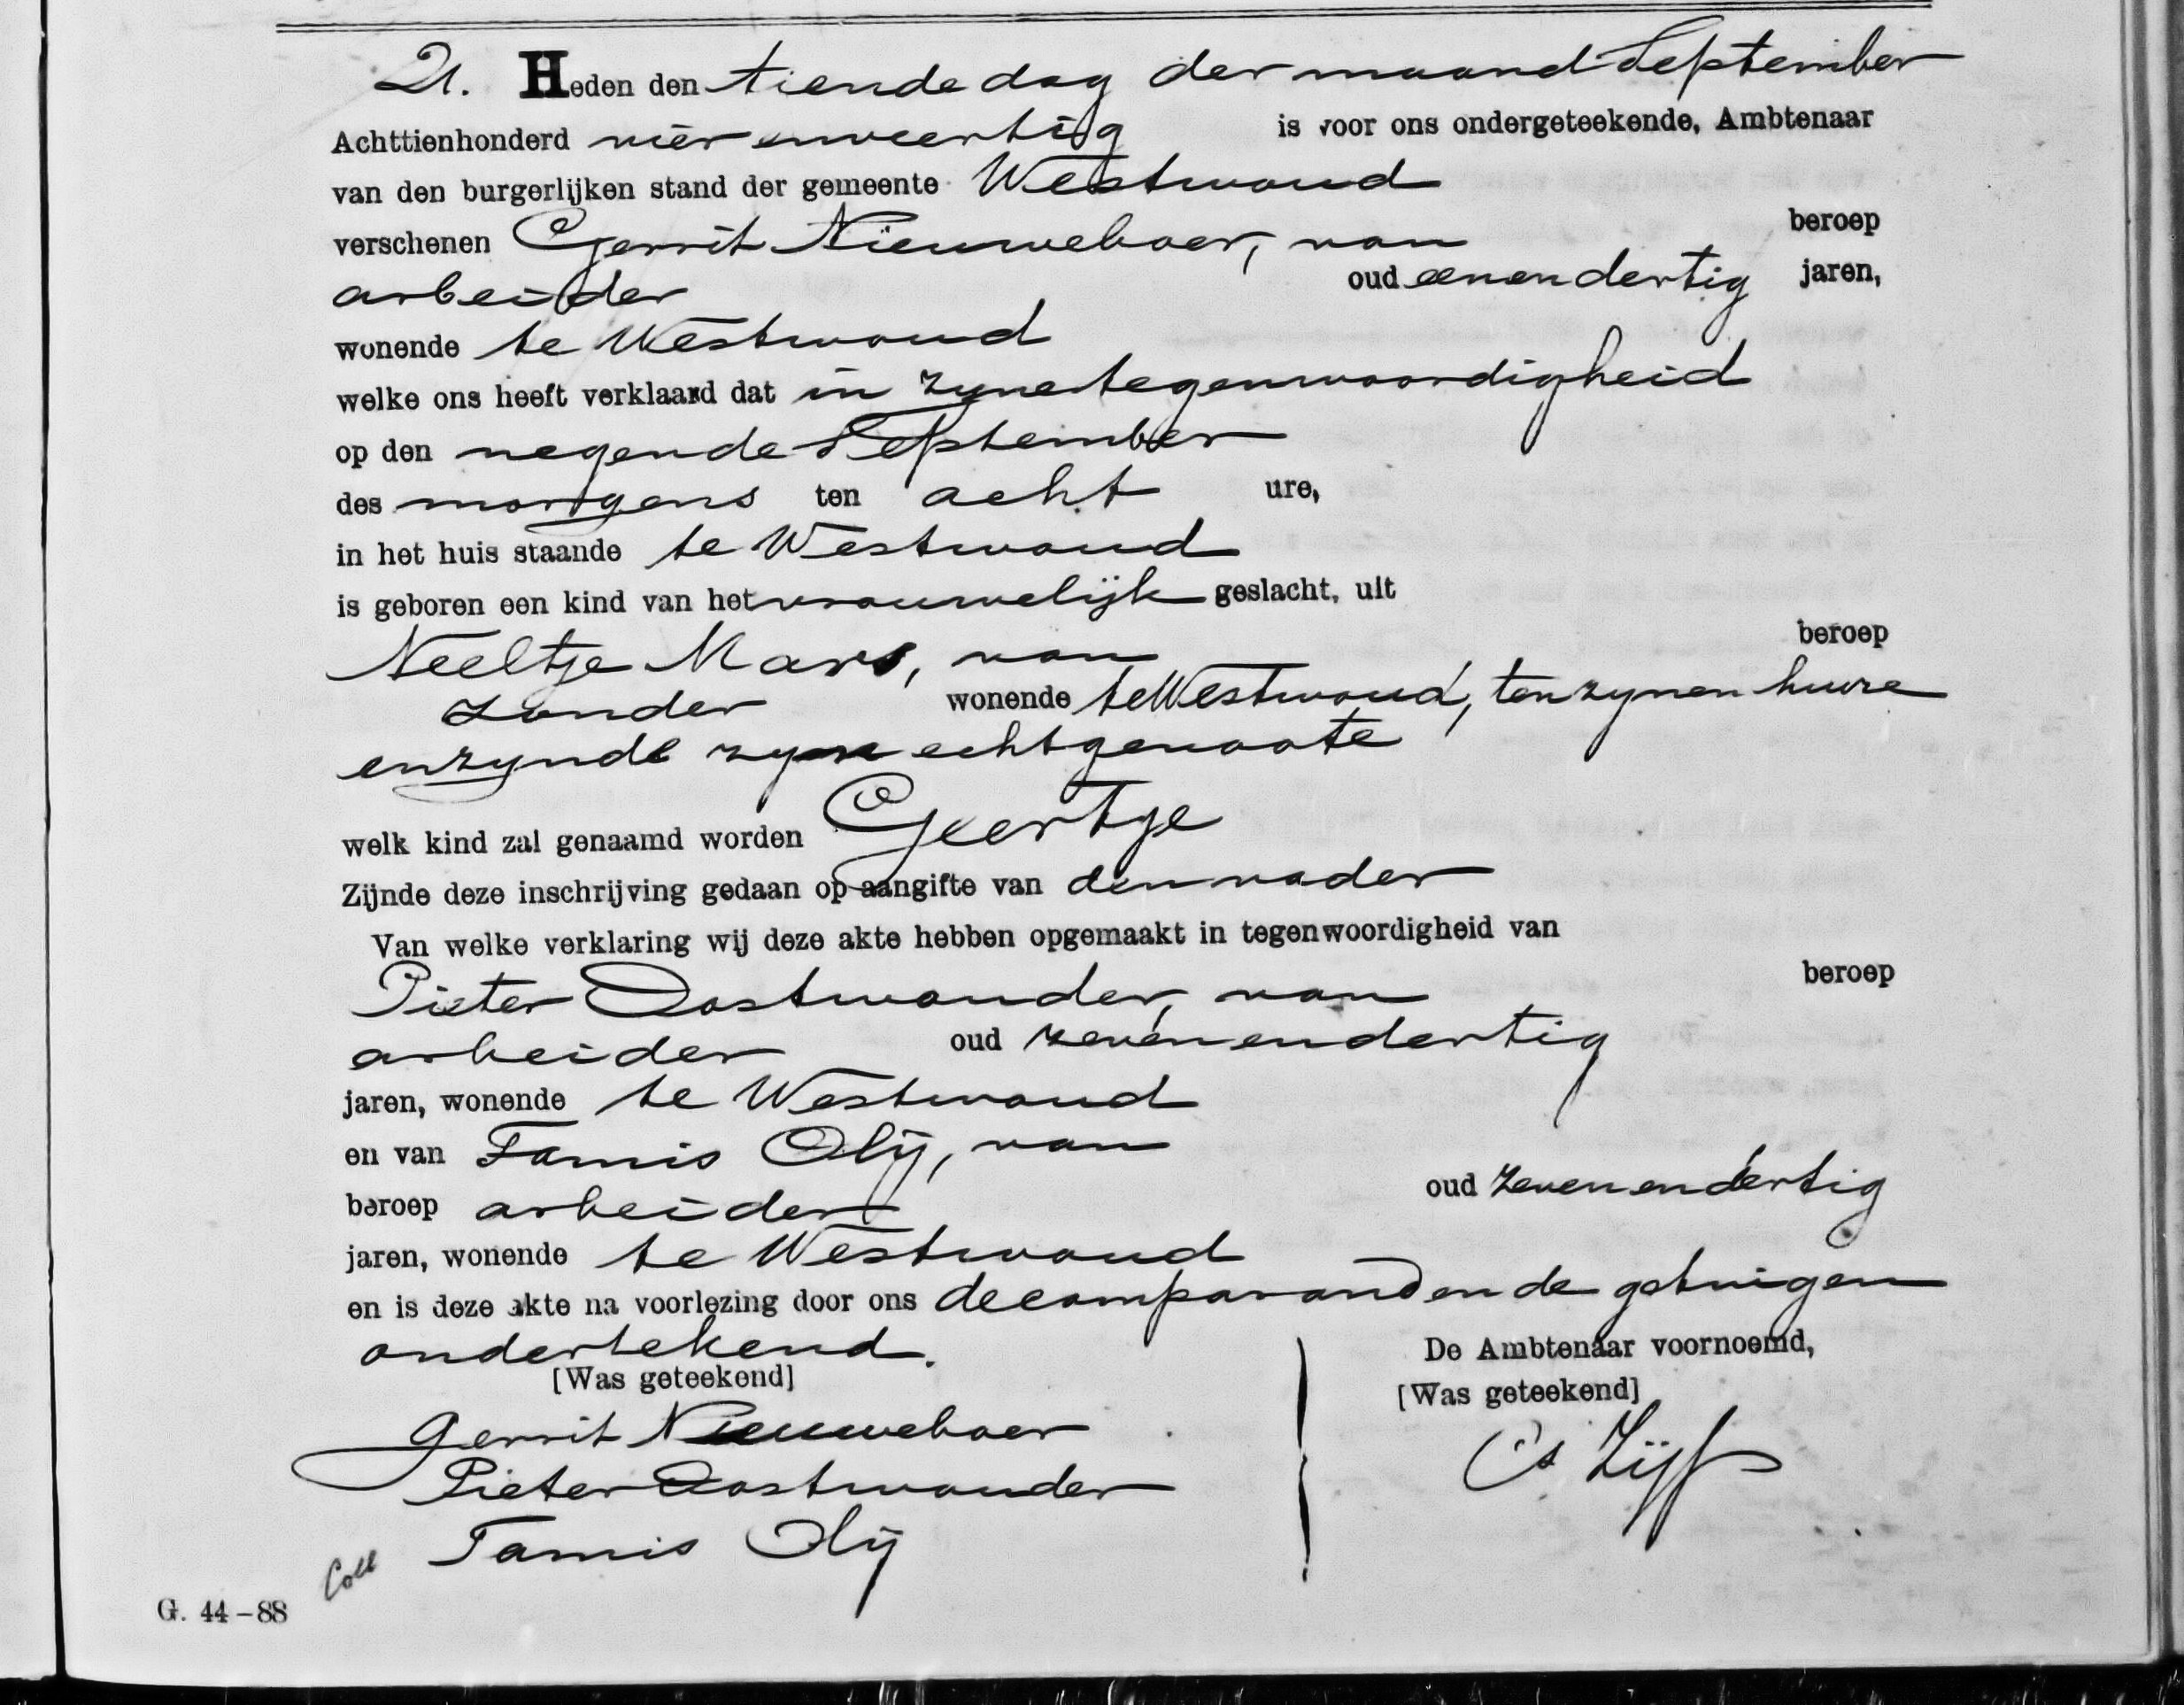 21. Heden den tiende dag der maand September
Achttienhonderd vier en veertig is voor ons ondergeteekende, Ambtenaar
van den burgerlijken stand der gemeente Westwoud
verschenen Gerrit Nieuweboer, van beroep
arbeider oud eenendertig jaren,
wonende te Westwoud
welke ons heeft verklaard dat in zyne tegenwoordigheid
op den negende September
des morgens ten acht ure,
in het huis staande te Westwoud
is geboren een kind van het vrouwelijk geslacht, uit
Neeltje Mars, van beroep
zonder wonende te Westwoud, ten zynen huize
en zynde zyne echtgenoote
welk kind zal genaamd worden Geertje
Zijnde deze inschrijving gedaan op aangifte van den vader
Van welke verklaring wij deze akte hebben opgemaakt in tegenwoordigheid van
Pieter Oostwouder, van beroep
arbeider oud zevenendertig
jaren, wonende te Westwoud
en van Tamis Olij, van
beroep arbeider oud zevenendertig
jaren, wonende te Westwoud
en is deze akte na voorlezing door ons de comparand en de getuigen
ondertekend.
[Was geteekend] De Ambtenaar voornoemd,
[Was geteekend]
Gerrit Nieuweboer
Pieter Oostwouder
Tamis Olij
Coll
G. 44-88